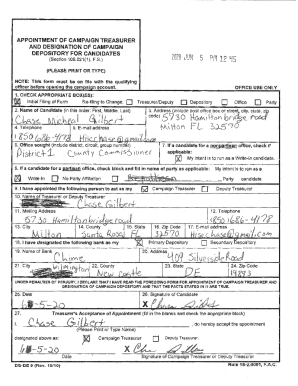 APPOINTMENT OF CAMPAIGN TREASURER
AND DESIGNATION OF CAMPAIGN
DEPOSITORY FOR CANDIDATES
(Section 106.021(1), F.S.)
(PLEASE PRINT OR TYPE)
2020 JUN 5 PM 12:45
NOTE: This form must be on file with the qualifying
officer before opening the campaign account.
OFFICE USE ONLY
1. CHECK APPROPRIATE BOX(ES):
Initial Filing of Form Re-filing to Change: Treasurer/Deputy Depository Office Party
2. Name of Candidate (in this order: First, Middle, Last)
Chase Micheal Gilbert
3. Address (include post office box or street, city, state, zip code)
5730 Hamilton bridge road
Milton FL 32570
4. Telephone
(850) 686-4178
5. E-mail address
Hiscchase@gmail.com
6. Office sought (include district, circuit, group number)
District 1 County Commissioner
7. If a candidate for a nonpartisan office, check if applicable:
My intent is to run as a Write-In candidate.
8. If a candidate for a partisan office, check block and fill in name of party as applicable: My intent is to run as a
Write-In No Party Affiliation Party candidate.
9. I have appointed the following person to act as my Campaign Treasurer Deputy Treasurer
10. Name of Treasurer or Deputy Treasurer
Chase Gilbert
11. Mailing Address
5730 Hamilton bridge road
12. Telephone
(850) 686-4178
13. City
Milton
14. County
Santa Rosa
15. State
FL
16. Zip Code
32570
17. E-mail address
Hiscchase@gmail.com
18. I have designated the following bank as my Primary Depository Secondary Depository
19. Name of Bank
Chime
20. Address
409 Silverside Road
21. City
Wilmington
22. County
New castle
23. State
DE
24. Zip Code
19893
UNDER PENALTIES OF PERJURY, I DECLARE THAT I HAVE READ THE FOREGOING FORM FOR APPOINTMENT OF CAMPAIGN TREASURER AND
DESIGNATION OF CAMPAIGN DEPOSITORY AND THAT THE FACTS STATED IN IT ARE TRUE.
25. Date
6-5-20
26. Signature of Candidate
X
27. Treasurer's Acceptance of Appointment (fill in the blanks and check the appropriate block)
I, Chase Gilbert , do hereby accept the appointment
(Please Print or Type Name)
designated above as: Campaign Treasurer Deputy Treasurer.
6-5-20 X
Date Signature of Campaign Treasurer or Deputy Treasurer
DS-DE 9 (Rev. 10/10) Rule 1S-2.0001, F.A.C.